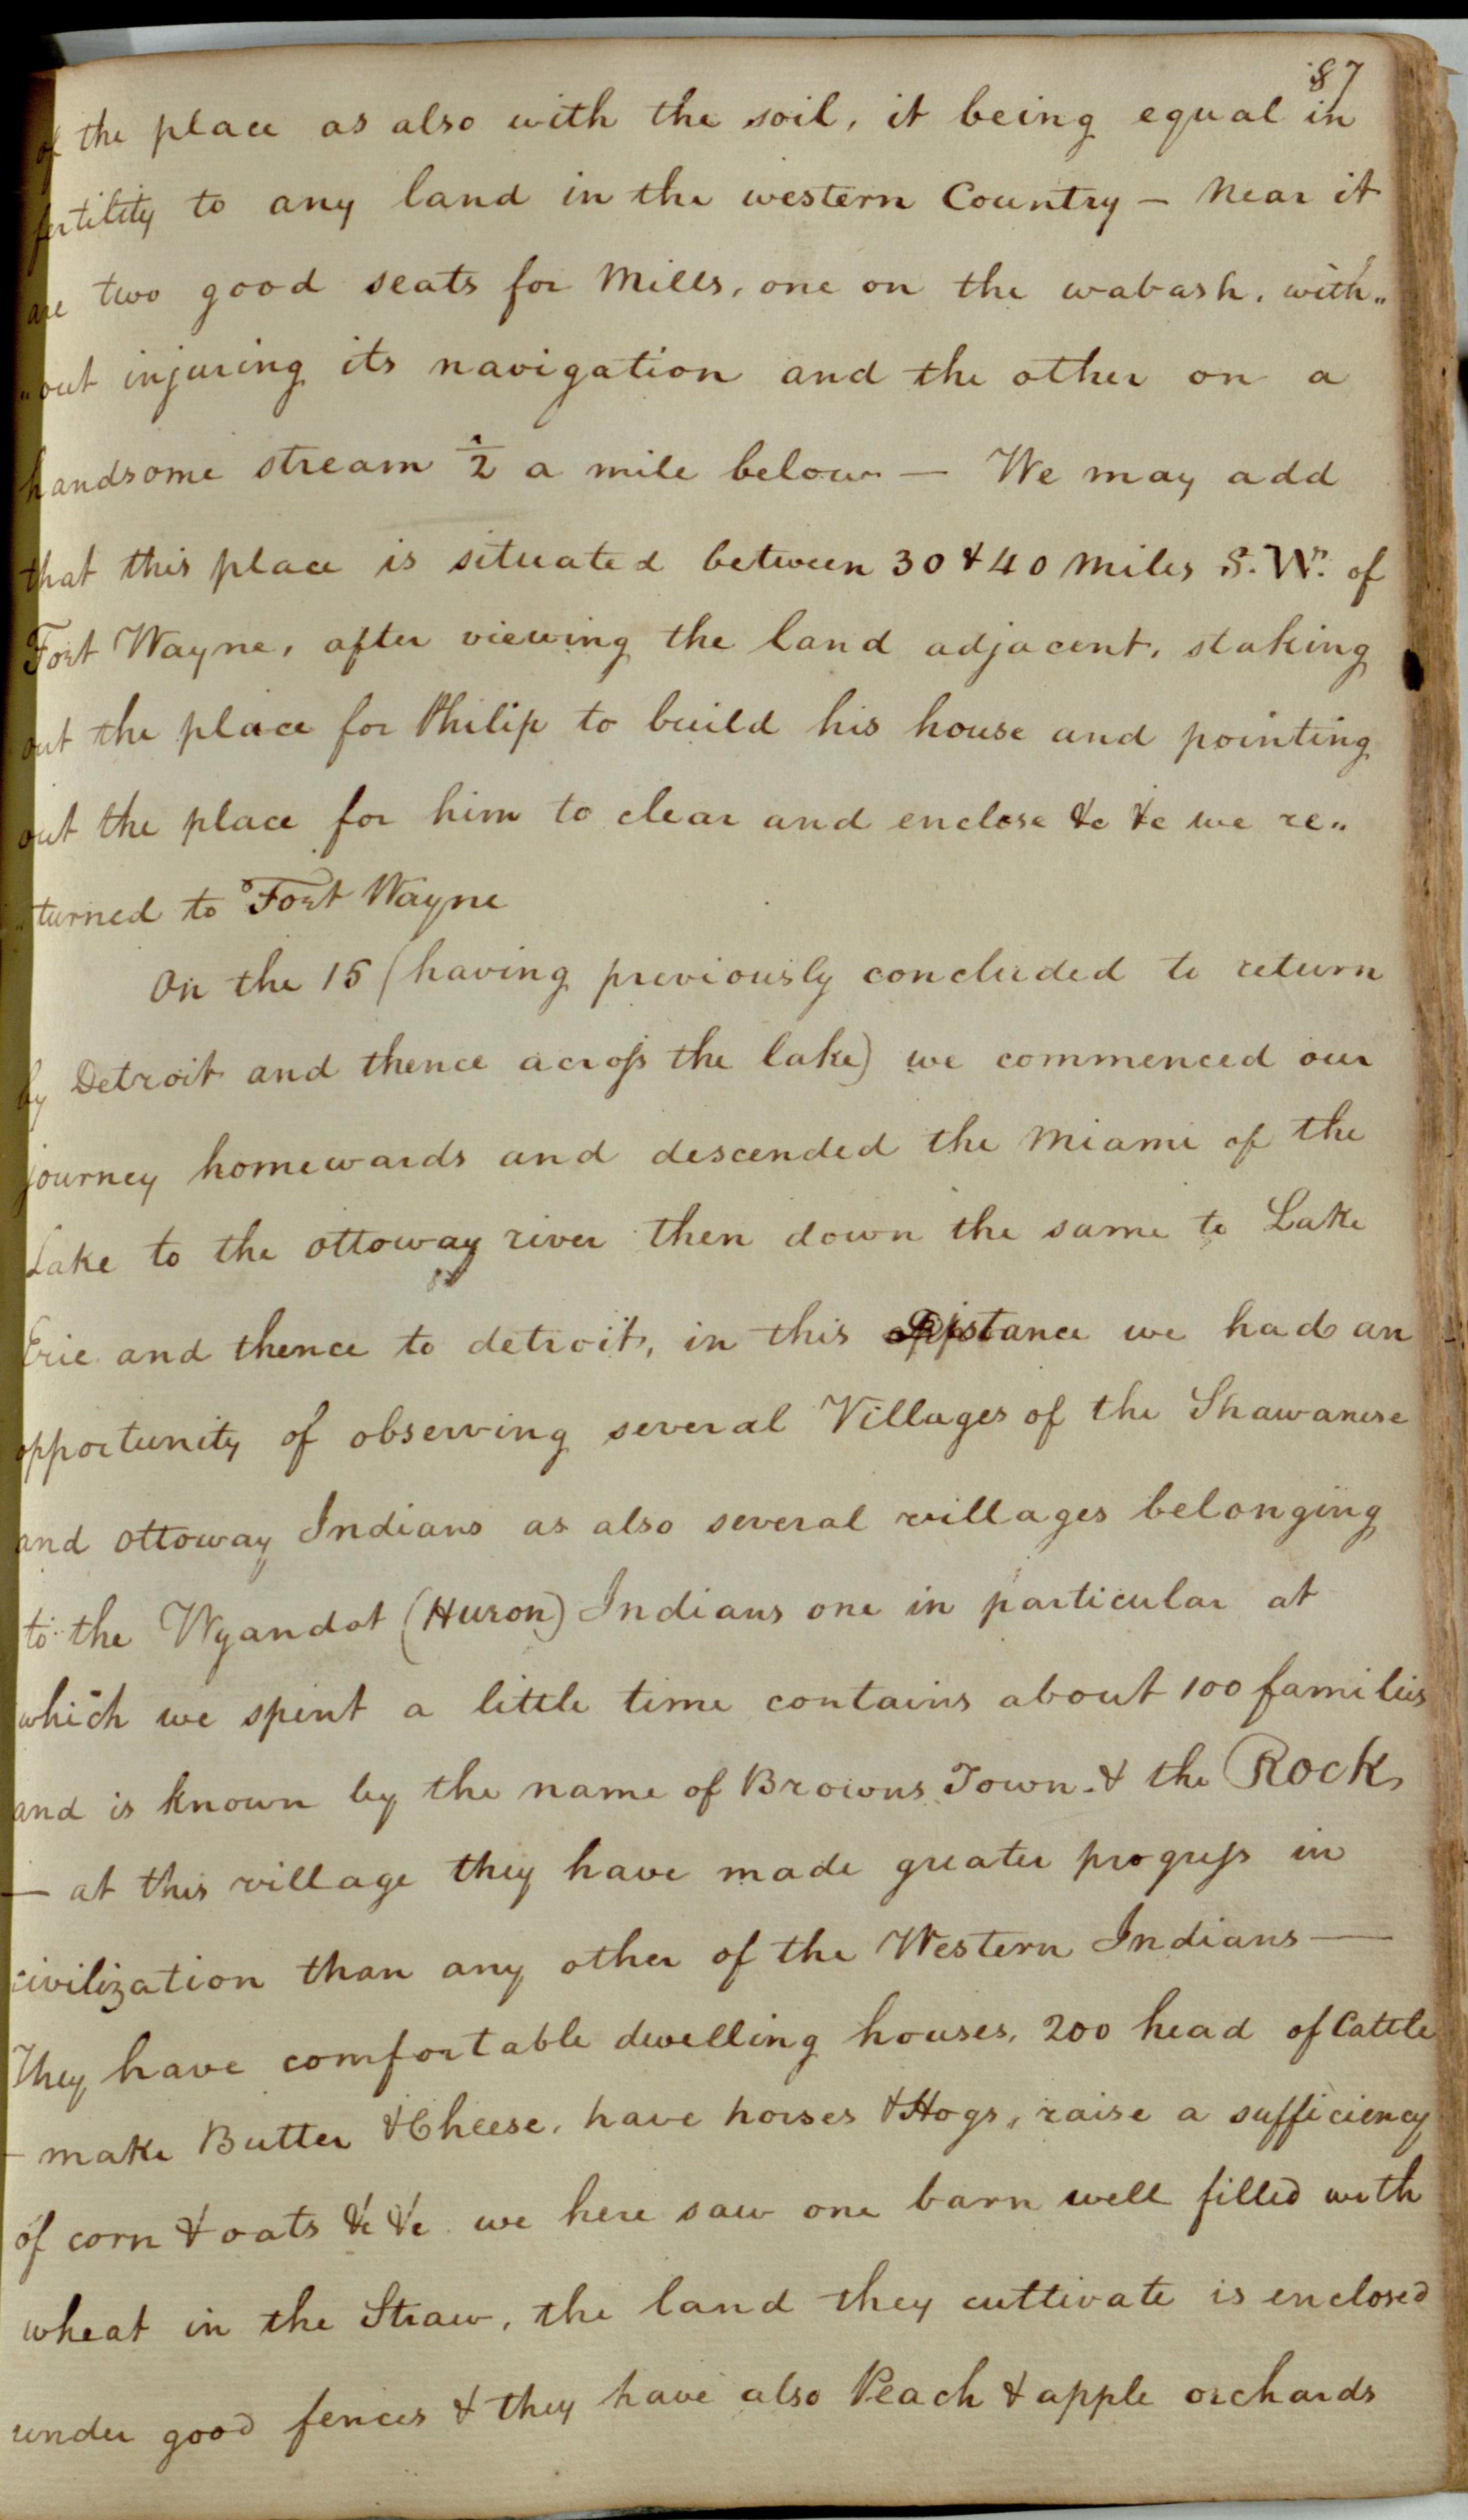 87
of the place as also with the soil, it being equal in
fertility to any land in the western Country — Near it
are two good seats for Mills, one on the wabash, with„
„out injuring its navigation and the other on a
handsome stream ½ a mile below — We may add
that this place is situated between 30 & 40 Miles S. Wn. of
Fort Wayne, after viewing the land adjacent, staking
out the place for Philip to build his house and pointing
out the place for him to clear and enclose &c &c we re„
„turned to Fort Wayne
On the 15 (having previously concluded to return
by Detroit and thence across the lake) we commenced our
journey homewards and descended the Miami of the
Lake to the ottoway river then down the same to Lake
Erie and thence to detroit, in this distance we had an
opportunity of observing several Villages of the Shawanese
and ottoway Indians as also several villages belonging
to the Wyandot (Huron) Indians one in particular at
which we spent a little time contains about 100 families
and is known by the name of Browns Town & the Rock,
— at this village they have made greater progress in
civilization than any other of the Western Indians —
They have comfortable dwelling houses, 200 head of Cattle
— make Butter & Cheese, have horses & Hogs, raise a sufficiency
of corn & oats &c &c we here saw one barn well filled with
wheat in the Straw, the land they cultivate is enclosed
under good fences & they have also Peach & apple orchards